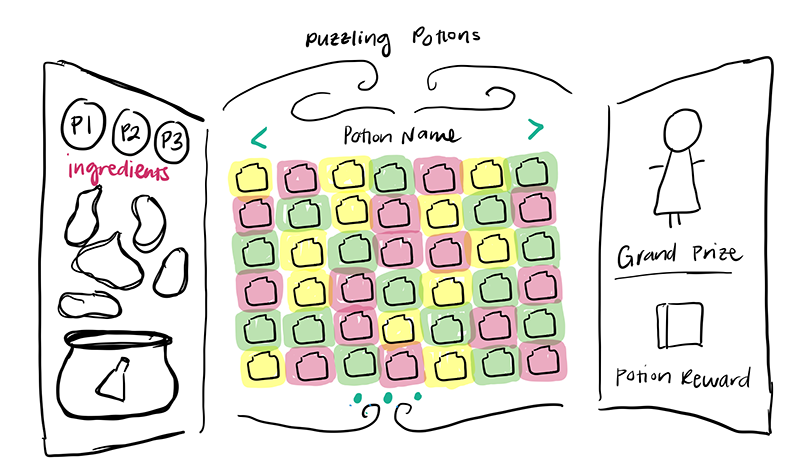 Puzzling Potions
P1 P2 P3
ingredients
< Potion Name >
Grand Prize
Potion Reward